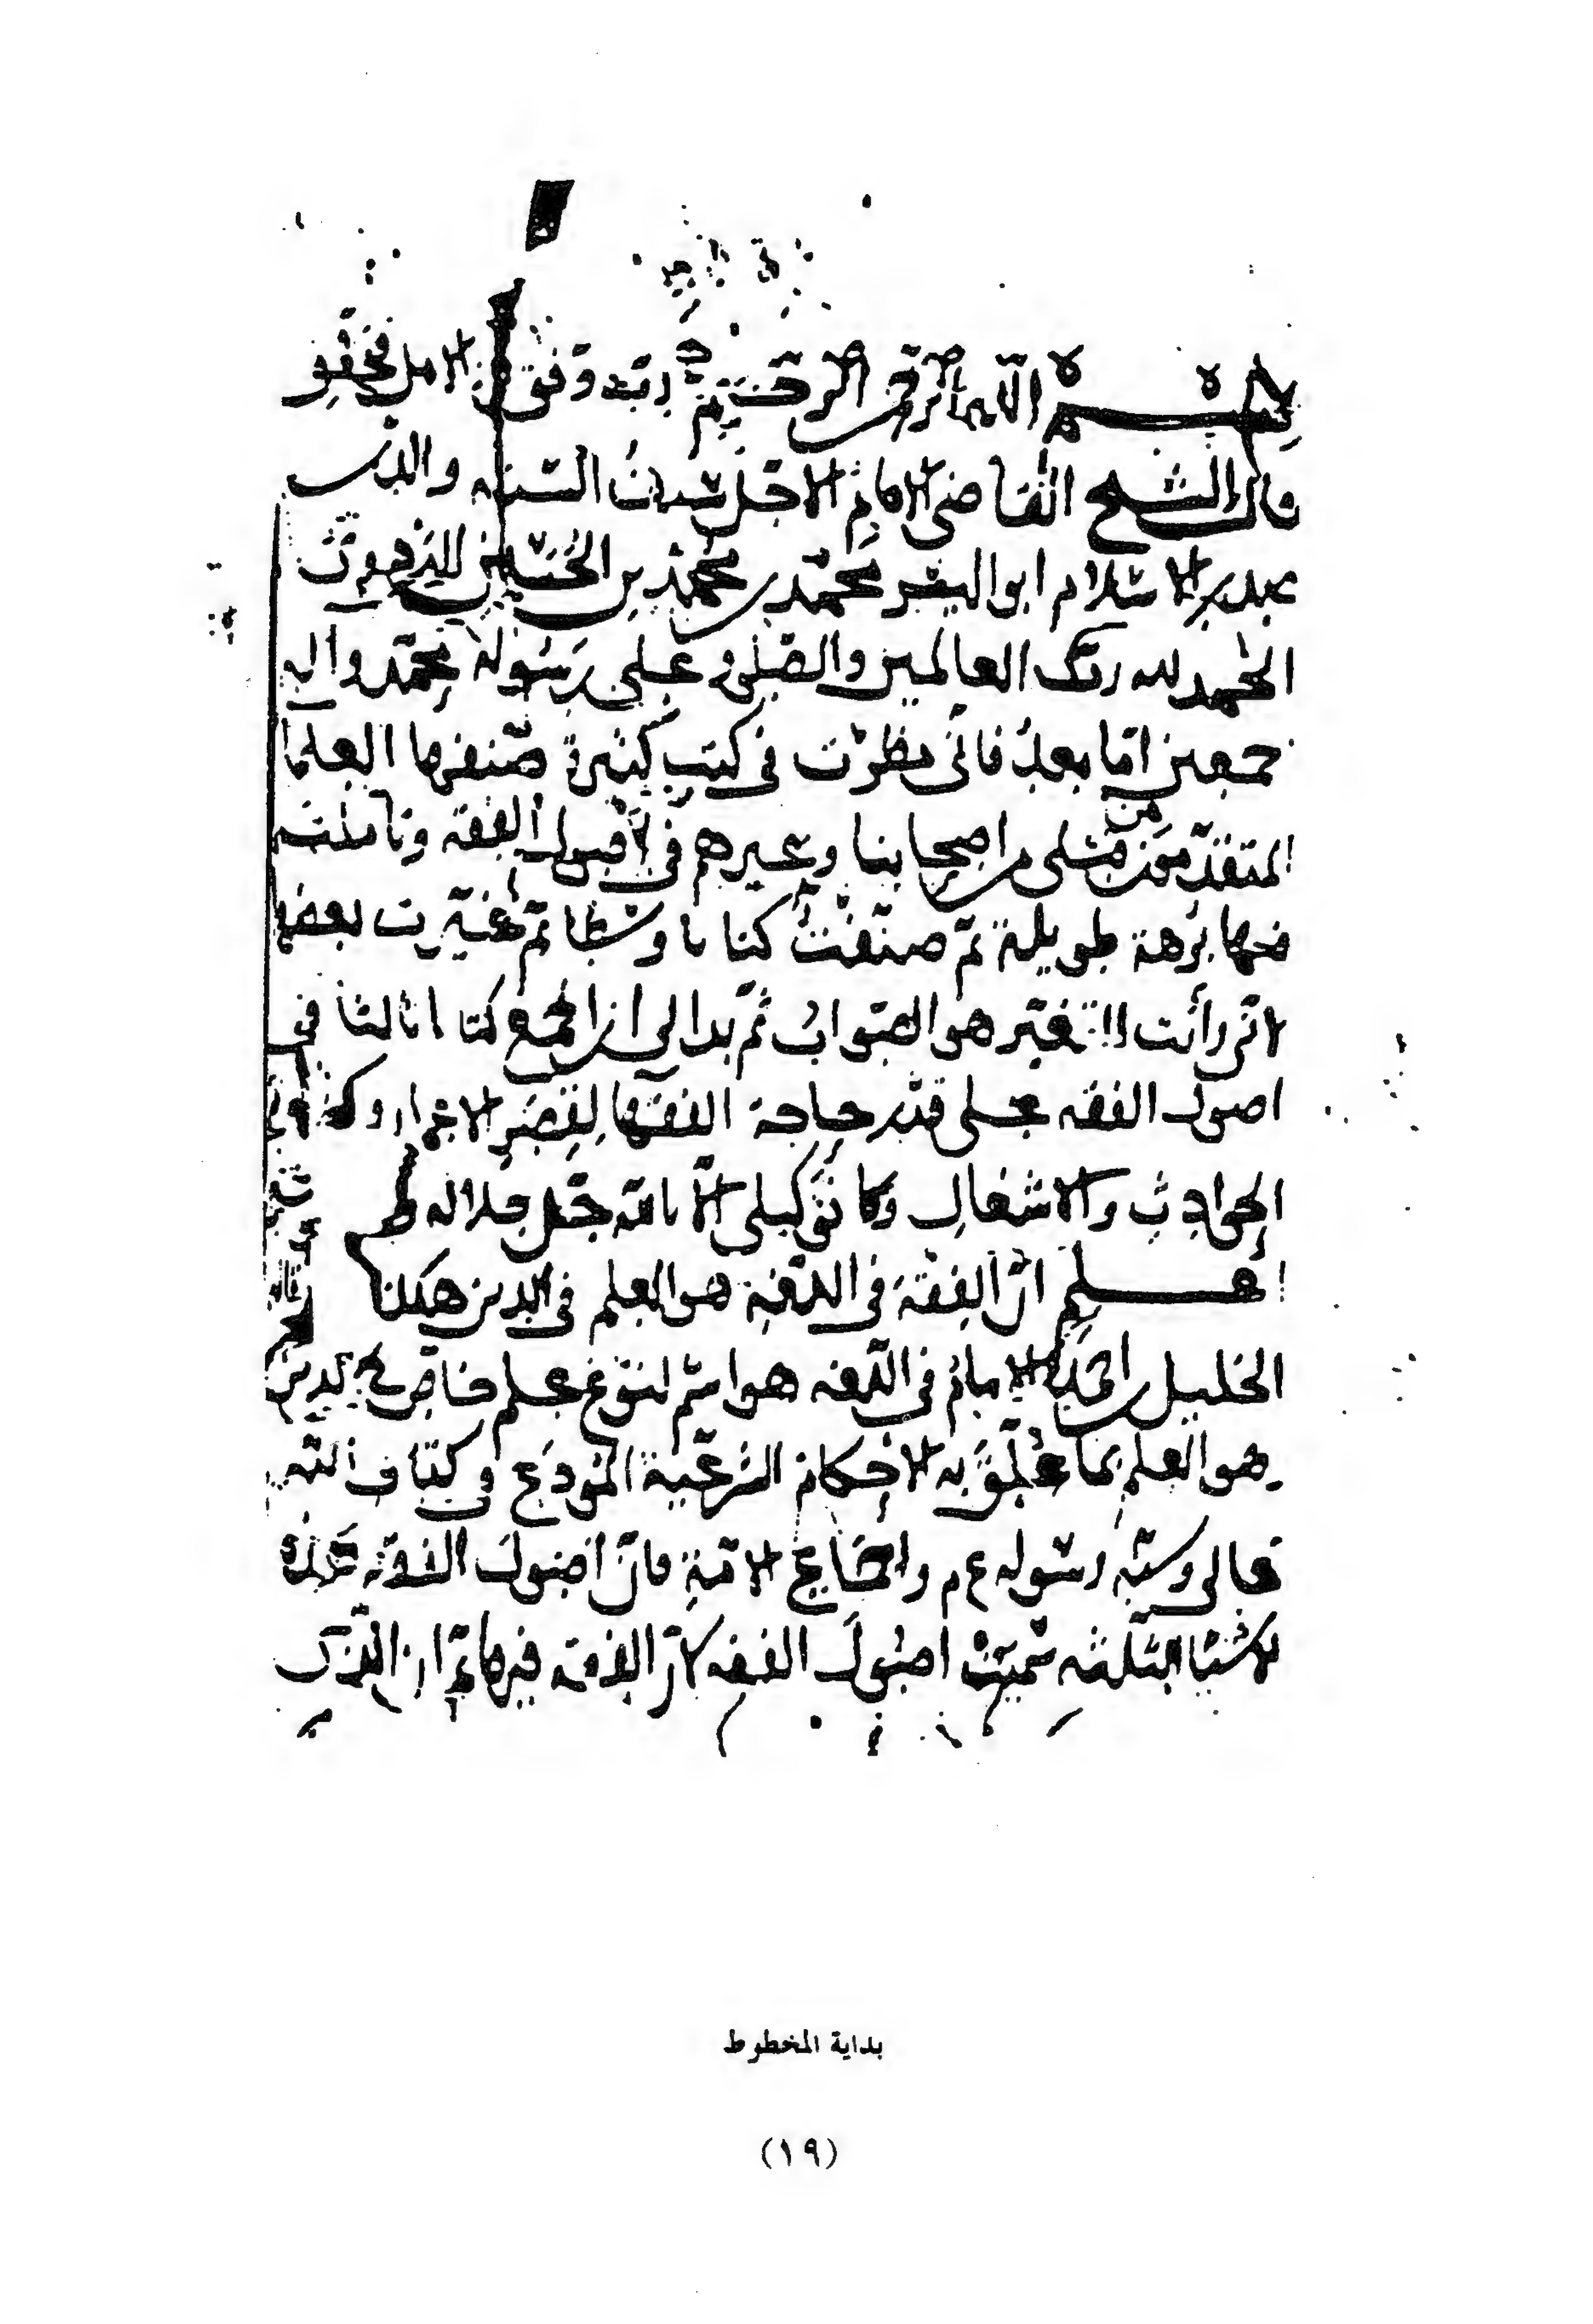 بسم الله الرحمن الرحيم
قال الشيخ القاضي الامام الاجل والدين
الاسلام ابو اليسر محمد بن محمد بن الحسين البزدوي
الحمد لله رب العالمين والصلوة على رسوله محمد واله
اجمعين اما بعد فاني نظرت في كتب كثيرة صنفها العلماء
المتقدمون من اصحابنا وغيرهم في اصول الفقه وتاملت
فيها برهة طويلة ثم صنفت كتابا وسطا ثم غيرت بعضها
لاني رأيت التغيير هو الصواب ثم بدا لي ان اجمع كتابا ثالثا في
اصول الفقه على قدر حاجة الفقهاء لقصر الاعمار وكثرة
الحوادث والاشغال وما توكيلي الا بالله جل جلاله
اعلم ان الفقه في اللغة هو العلم في الدين هكذا
الخليل بن احمد الامام في اللغة هو اسم لنوع علم خاص في الدين
وهو العلم بما علق به الاحكام الشرعية المودع في كتاب الله
تعالى وسنة رسوله ع م واجماع الامة فان اصول الفقه هذه
الاشياء الثلثة سميت اصول الفقه لان الفقه فيها
بداية المخطوط
(١٩)